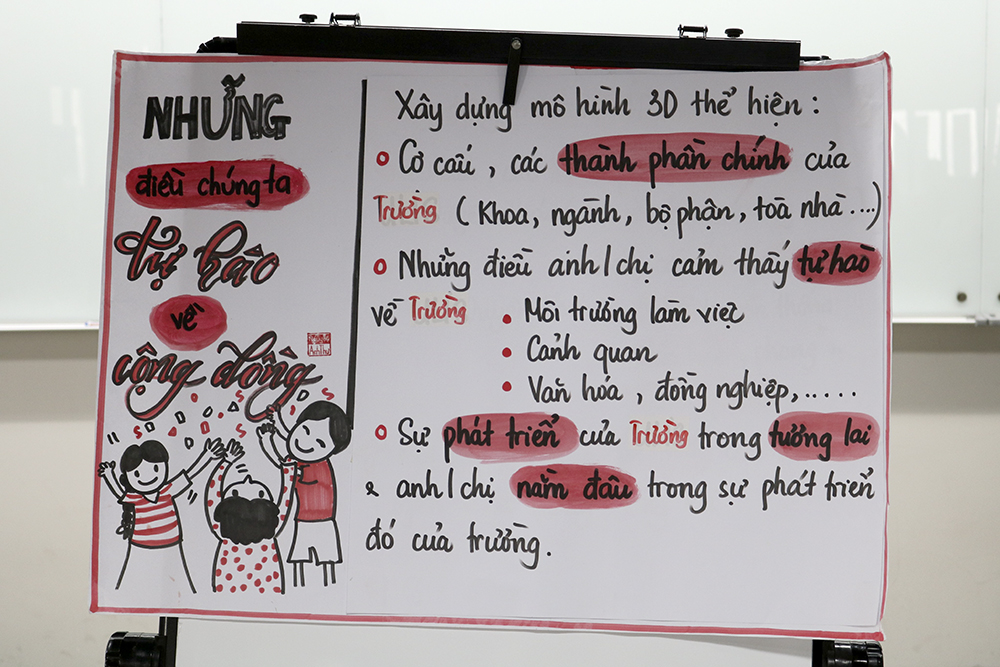 NHỮNG
điều chúng ta
tự hào
về
cộng đồng
Xây dựng mô hình 3D thể hiện :
Cơ cấu , các thành phần chính của
Trường ( Khoa, ngành, bộ phận, toà nhà ...)
Những điều anh/chị cảm thấy tự hào
về Trường
Môi trường làm việc
Cảnh quan
Văn hóa , đồng nghiệp, .....
Sự phát triển của Trường trong tương lai
& anh/chị nằm đâu trong sự phát triển
đó của trường.